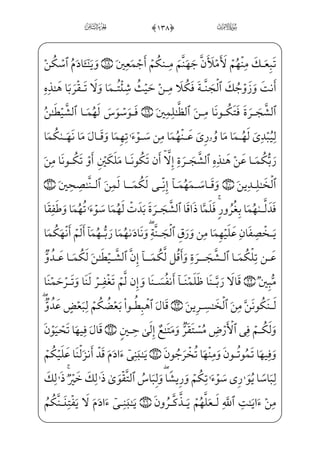 سُورَةُ الأَعْرَافِ ﴿١٣٨﴾ الجُزْءُ الثَّامِنُ
تَبِعَكَ مِنْهُمْ لَأَمْلَأَنَّ جَهَنَّمَ مِنكُمْ أَجْمَعِينَ ١٨ وَيَـٰٓـَٔادَمُ ٱسْكُنْ
أَنتَ وَزَوْجُكَ ٱلْجَنَّةَ فَكُلَا مِنْ حَيْثُ شِئْتُمَا وَلَا تَقْرَبَا هَـٰذِهِ
ٱلشَّجَرَةَ فَتَكُونَا مِنَ ٱلظَّـٰلِمِينَ ١٩ فَوَسْوَسَ لَهُمَا ٱلشَّيْطَـٰنُ
لِيُبْدِىَ لَهُمَا مَا وُۥرِىَ عَنْهُمَا مِن سَوْءَٰتِهِمَا وَقَالَ مَا نَهَىٰكُمَا
رَبُّكُمَا عَنْ هَـٰذِهِ ٱلشَّجَرَةِ إِلَّآ أَن تَكُونَا مَلَكَيْنِ أَوْ تَكُونَا مِنَ
ٱلْخَـٰلِدِينَ ٢٠ وَقَاسَمَهُمَآ إِنِّى لَكُمَا لَمِنَ ٱلنَّـٰصِحِينَ ٢١
فَدَلَّىٰهُمَا بِغُرُورٍ ۚ فَلَمَّا ذَاقَا ٱلشَّجَرَةَ بَدَتْ لَهُمَا سَوْءَٰتُهُمَا وَطَفِقَا
يَخْصِفَانِ عَلَيْهِمَا مِن وَرَقِ ٱلْجَنَّةِ ۖ وَنَادَىٰهُمَا رَبُّهُمَآ أَلَمْ أَنْهَكُمَا
عَن تِلْكُمَا ٱلشَّجَرَةِ وَأَقُل لَّكُمَآ إِنَّ ٱلشَّيْطَـٰنَ لَكُمَا عَدُوٌّ
مُّبِينٌ ٢٢ قَالَا رَبَّنَا ظَلَمْنَآ أَنفُسَنَا وَإِن لَّمْ تَغْفِرْ لَنَا وَتَرْحَمْنَا
لَنَكُونَنَّ مِنَ ٱلْخَـٰسِرِينَ ٢٣ قَالَ ٱهْبِطُوا۟ بَعْضُكُمْ لِبَعْضٍ عَدُوٌّ ۖ
وَلَكُمْ فِى ٱلْأَرْضِ مُسْتَقَرٌّ وَمَتَـٰعٌ إِلَىٰ حِينٍ ٢٤ قَالَ فِيهَا تَحْيَوْنَ
وَفِيهَا تَمُوتُونَ وَمِنْهَا تُخْرَجُونَ ٢٥ يَـٰبَنِىٓ ءَادَمَ قَدْ أَنزَلْنَا عَلَيْكُمْ
لِبَاسًا يُوَٰرِى سَوْءَٰتِكُمْ وَرِيشًا ۖ وَلِبَاسُ ٱلتَّقْوَىٰ ذَٰلِكَ خَيْرٌ ۚ ذَٰلِكَ
مِنْ ءَايَـٰتِ ٱللَّهِ لَعَلَّهُمْ يَذَّكَّرُونَ ٢٦ يَـٰبَنِىٓ ءَادَمَ لَا يَفْتِنَنَّكُمُ